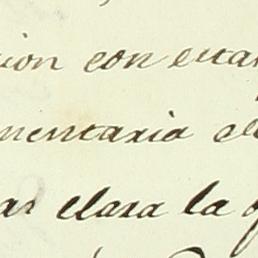 cion con esta
mentaria el
as clara la